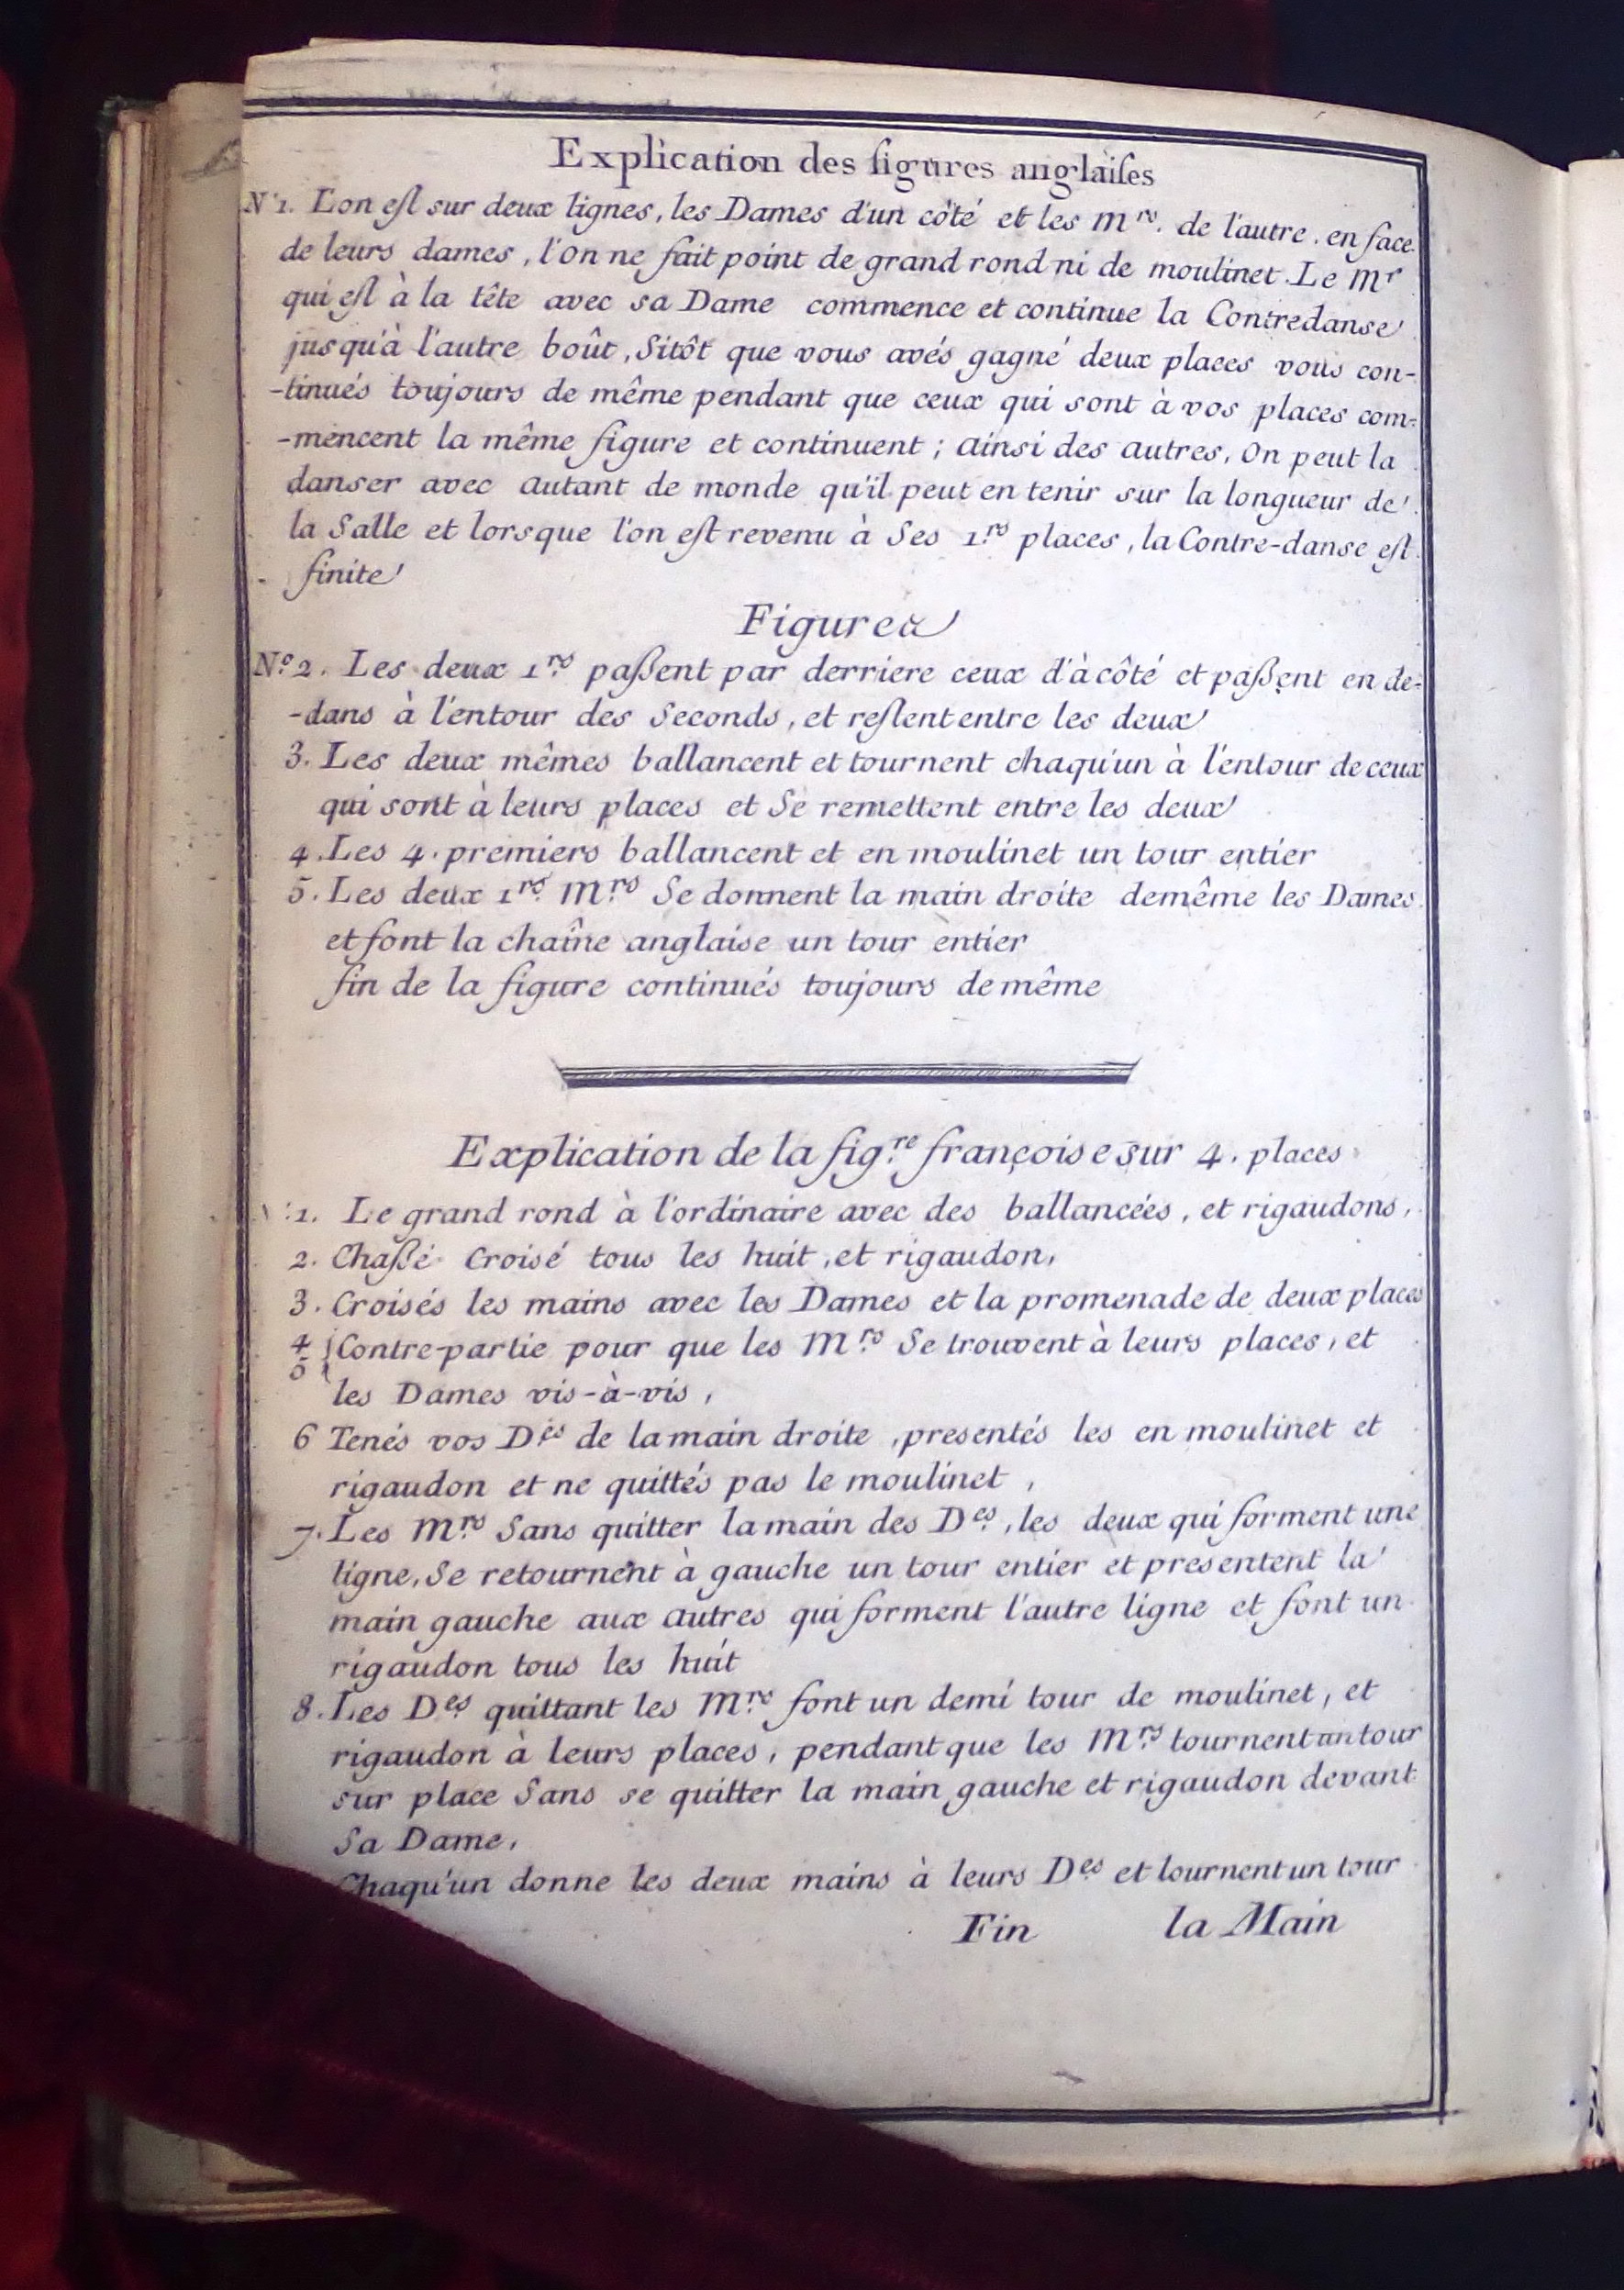 Explication des figures anglaises
N°1. L'on est sur deux lignes, les Dames d'un côté et les Mrs. de l'autre. en face
de leurs dames, l'on ne fait point de grand rond ni de moulinet. Le Mr
qui est à la tête avec sa Dame commence et continue la Contredanse
jusqu'à l'autre boût, Sitôt que vous avés gagné deux places vous con-
-tinués toujours de même pendant que ceux qui sont à vos places com-
-mencent la même figure et continuent ; ainsi des autres, On peut la
danser avec autant de monde qu'il peut en tenir sur la longueur de
la Salle et lorsque l'on est revenu à Ses 1.rs places, la Contre-danse est
finite
Figures
N.º 2. Les deux 1.rs paßent par derriere ceux d'à côté et paßent en de-
-dans à l'entour des Seconds, et restent entre les deux
3. Les deux mêmes ballancent et tournent chaqu'un à l'entour de ceux
qui sont à leurs places et Se remettent entre les deux
4. Les 4. premiers ballancent et en moulinet un tour entier
5. Les deux 1.rs M.rs Se donnent la main droite demême les Dames
et font la chaîne anglaise un tour entier
fin de la figure continués toujours de même
Explication de la fig.re françoise sur 4. places
1. Le grand rond à l'ordinaire avec des ballancées, et rigaudons,
2. Chaßé Croisé tous les huit, et rigaudon,
3. Croisés les mains avec les Dames et la promenade de deux places
4 { Contre-partie pour que les M.rs Se trouvent à leurs places, et
5 { les Dames vis-à-vis,
6 Tenés vos D.es de la main droite, presentés les en moulinet et
rigaudon et ne quittés pas le moulinet,
7. Les M.rs Sans quitter la main des D.es, les deux qui forment une
ligne, Se retournent à gauche un tour entier et presentent la
main gauche aux autres qui forment l'autre ligne et font un
rigaudon tous les huit
8. Les D.es quittant les M.rs font un demi tour de moulinet, et
rigaudon à leurs places, pendant que les M.rs tournent un tour
sur place Sans se quitter la main gauche et rigaudon devant
Sa Dame,
Chaqu'un donne les deux mains à leurs D.es et tournent un tour
Fin la Main